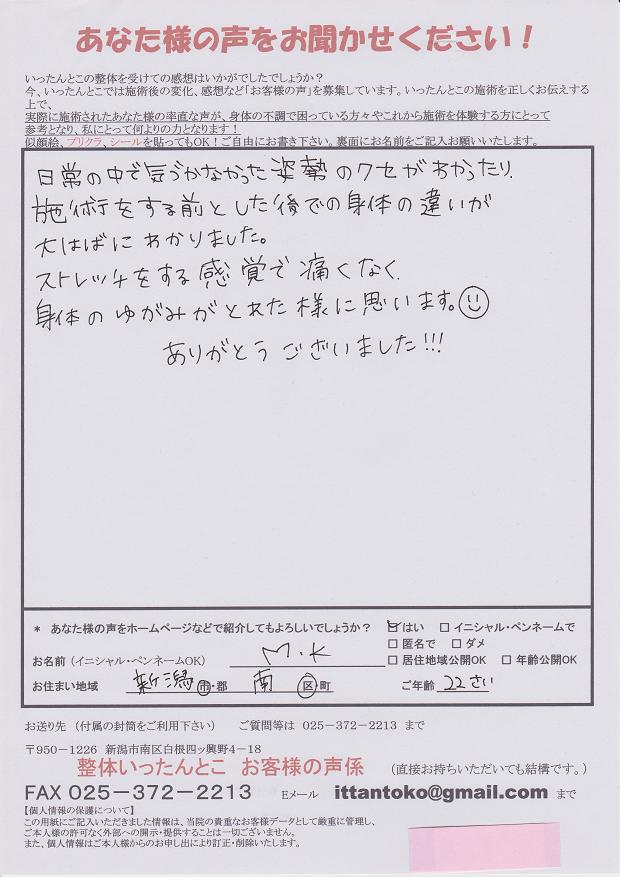 あなた様の声をお聞かせください！
いったんとこの整体を受けての感想はいかがでしたでしょうか？
今、いったんとこでは施術後の変化、感想など「お客様の声」を募集しています。いったんとこの施術を正しくお伝えする
上で、
実際に施術されたあなた様の率直な声が、身体の不調で困っている方々やこれから施術を体験する方にとって
参考となり、私にとって何よりの力となります！
似顔絵、プリクラ、シールを貼ってもOK！ご自由にお書き下さい。裏面にお名前をご記入お願いいたします。
日常の中で気づかなかった姿勢のクセがわかったり、
施術をする前とした後での身体の違いが
大はばにわかりました。
ストレッチをする感覚で痛くなく、
身体のゆがみがとれた様に思います。
ありがとうございました!!!
* あなた様の声をホームページなどで紹介してもよろしいでしょうか？ ☑はい □イニシャル・ペンネームで
□匿名で □ダメ
お名前（イニシャル・ペンネームOK） M・K □居住地域公開OK □年齢公開OK
お住まい地域 新潟 市・郡 南 区・町 ご年齢 22さい
お送り先 （付属の封筒をご利用下さい） ご質問等は 025－372－2213 まで
〒950－1226 新潟市南区白根四ッ興野4－18
整体いったんとこ お客様の声係 （直接お持ちいただいても結構です。）
FAX 025－372－2213 Eメール ittantoko@gmail.com まで
【個人情報の保護について】
この用紙にご記入いただきました情報は、当院の貴重なお客様データとして厳重に管理し、
ご本人様の許可なく外部への開示・提供することは一切ございません。
また、個人情報はご本人様からのお申し出により訂正・削除いたします。